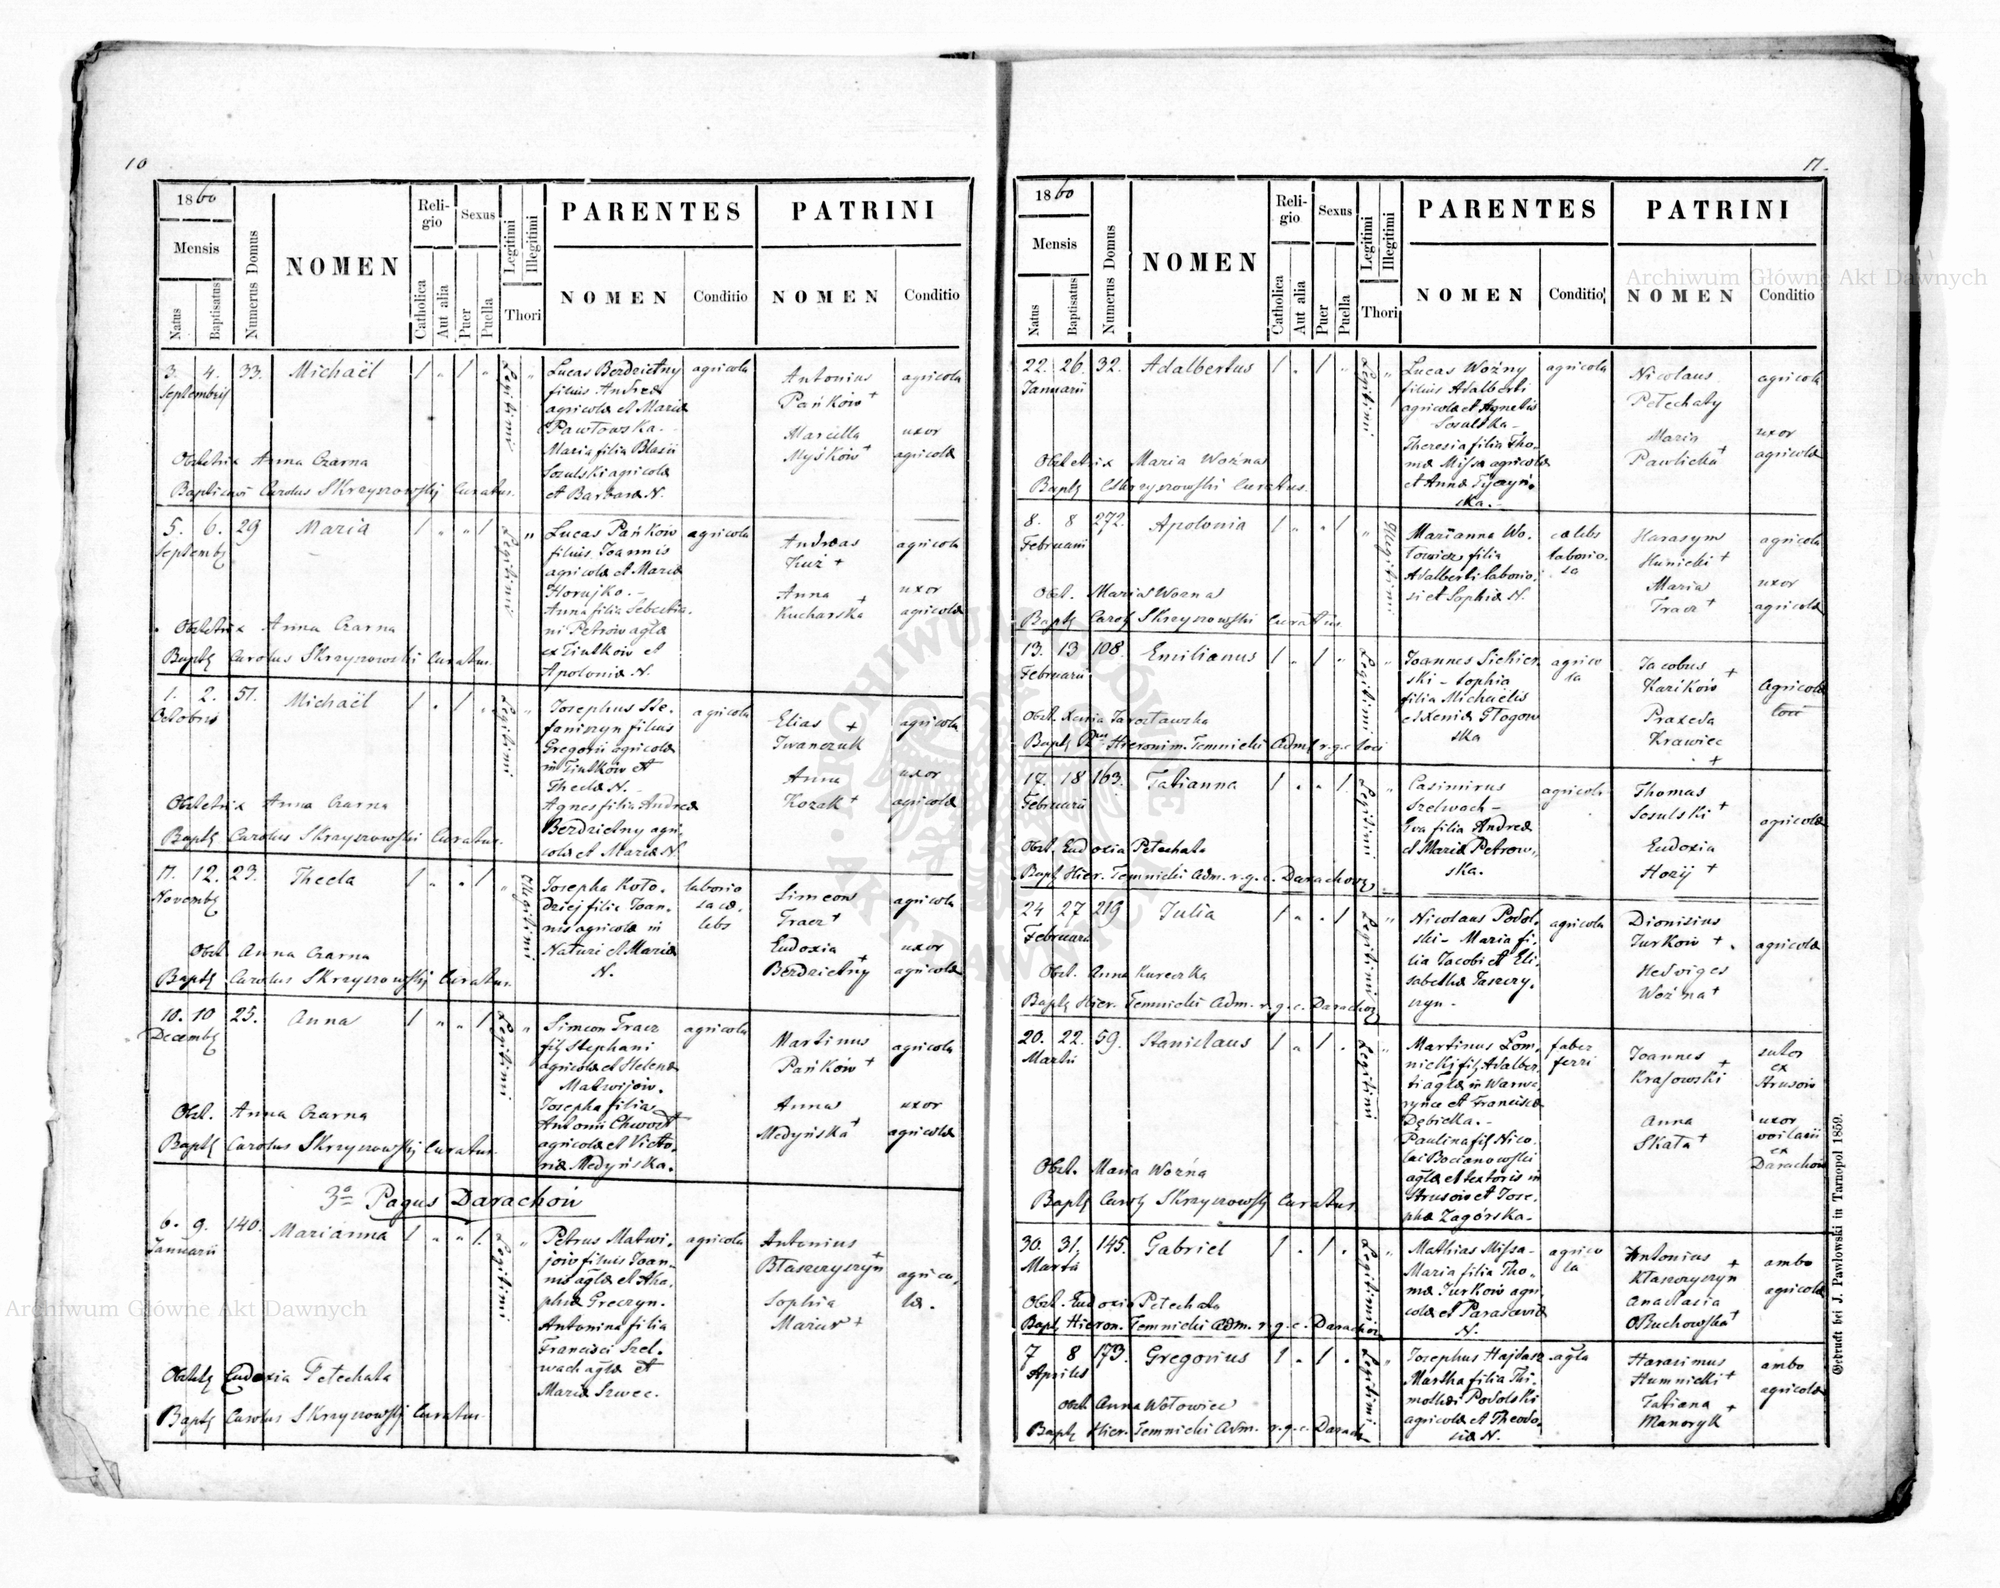 10
1860
Mensis
Natus
Baptisatus
Numerus Domus
NOMEN
Reli-
gio
Catholica
Aut alia
Sexus
Puer
Puella
Legitimi
Illegitimi
Thori
PARENTES
NOMEN
Conditio
PATRINI
NOMEN
Conditio
3. 4. 33. Michaël 1 „ 1 „
Septembris
Legitimi
Lucas Berdzietny
filius Andreæ
agricolæ et Mariæ
Pawłowska.-
Maria filia Blasii
Sosulski agricolæ
et Barbaræ N.
agricola
Antonius
Pańków +
Marcella
Myśków +
agricola
uxor
agricolæ
Obstetrix Anna Czarna
Baptisavi Carolus Skrzyszowski Curatus.
5. 6. 29 Maria 1 „ „ 1
Septemb
Legitimi
Lucas Pańków
filius Joannis
agricolæ et Mariæ
Horujko.-
Anna filia Sebastia-
ni Petrów aglæ
ex Tiutków et
Apoloniæ N.
agricola
Andreas
Kuz +
Anna
Kucharska +
agricola
uxor
agricolæ
Obstetrix Anna Czarna
Bapt Carolus Skrzyszowski Curatus.
1. 2. 51. Michaël 1 . 1 „
Octobris
Legitimi
Josephus Ste-
faniszyn filius
Gregorii agricolæ
in Tiutków et
Theclæ N.-
Agnes filia Andreæ
Berdzietny agri-
colæ et Mariæ N.
agricola
Elias +
Iwanczuk
Anna
Kozak +
agricola
uxor
agricolæ
Obstetrix Anna Czarna
Bapt Carolus Skrzyszowski Curatus.
11. 12. 23. Thecla 1 „ . 1
Novemb
Illegitimi
Josepha Koło-
dziej filia Joan-
nis agricolæ in
Naturi et Mariæ
N.
laborio
sa cæ-
lebs
Simeon
Tracz +
Eudoxia
Berdzietny +
agricola
uxor
agricolæ
Obst Anna Czarna
Bapt Carolus Skrzyszowski Curatus.
10. 10 25. Anna 1 „ „ 1
Decemb
Legitimi
Simeon Tracz
fil Stephani
agricolæ et Helenæ
Matwijów.
Josepha filia
Antonii Chwort
agricolæ et Victo-
riæ Medyńska.
agricola
Martinus
Pańków +
Anna
Medyńska +
agricola
uxor
agricolæ
Obst. Anna Czarna
Bapt Carolus Skrzyszowski Curatus.
3º Pagus Darachów
6. 9. 140. Marianna 1 „ „ 1.
Januarii
Legitimi
Petrus Matwi-
jów filius Joan-
nis aglæ et Aha-
phiæ Greczyn.
Antonina filia
Francisci Szel-
wach aglæ et
Mariæ Szwec.
agricola
Antonius
Błaszczyszyn +
Sophia
Mazur +
agrico-
læ.
Obstet Eudoxia Petechata
Bapt Carolus Skrzyszowski Curatus.
11.
1860
Mensis
Natus
Baptisatus
Numerus Domus
NOMEN
Reli-
gio
Catholica
Aut alia
Sexus
Puer
Puella
Legitimi
Illegitimi
Thori
PARENTES
NOMEN
Conditio
PATRINI
NOMEN
Conditio
22. 26. 32. Adalbertus 1 . 1 „
Januarii
Legitimi
Lucas Woźny
filius Adalberti
agricolæ et Agnetis
Sosulska-
Theresia filia Tho-
mæ Missa agricolæ
et Annæ Tyczyń-
ska.-
agricola
Nicolaus
Petechaty
Maria
Pawlicka +
agricola
uxor
agricolæ
Obstetrix Maria Woźna
Bapt CSkrzyszowski Curatus.
8. 8 272. Apolonia 1 „ „ 1.
Februarii
Illegitimi
Marianna Wo-
towicz filia
Adalberti laborio-
si et Sophiæ N.
cælebs
laborio-
sa
Harasym
Kunicki +
Maria
Tracz +
agricola
uxor
agricolæ
Obst. Maria Wozna
Bapt Carol Skrzyszowski Curatus
13. 13 108. Emilianus 1 „ 1 „
Februarii
Legitimi
Joannes Sickier-
ski - Sophia
filia Michaëlis
et Xeniæ Głogow
ska
agrico
la
Jacobus +
Karików
Praxeda
Krawiec
+
Agricolæ
Obst. Xenia Jarosławska
Bapt Hieronim. Temnicki Adm. r.g.c. loci
17. 18 163. Tatianna 1 „ „ 1.
Februarii
Legitimi
Casimirus
Szelwach-
Eva filia Andreæ
et Mariæ Petrow-
ska.
agricola
Thomas
Sosulski +
Eudoxia
Horij +
agricolæ
Obst. Eudoxia Petechata
Bapt Hier. Temnicki Adm. r.g.c. Darachov
24 27 219 Julia 1 . „ 1
Februarii
Legitimi
Nicolaus Podol-
ski- Maria fi-
lia Jacobi et Eli-
sabethæ Taszczy-
szyn-
agricola
Dionisius
Turkow +
Hedviges
Woźna +
agricolæ
Obst. Anna Kureczka
Bapt Hier. Temnicki Adm. r.g.c. Darachov
20. 22. 59. Stanislaus 1 „ 1 .
Martii
Legitimi
Martinus Łom-
nicki fil Adalber-
ti aglæ in Warwa-
ryńce et Franciscæ
Dębicka.-
Paulina fil Nico-
lai Bocianowski
aglæ et textoris in
Strusów et Jose-
phæ Zagórska-
faber
ferri
Joannes
Krasowski +
Anna
Skała +
sutor
ex
Strusów
uxor
ex
Darachów
Obst. Maria Woźna
Bapt Carol Skrzyszowski Curatus.
30. 31. 145. Gabriel 1 . 1 .
Martii
Legitimi
Mathias Missa-
Maria filia Tho-
mæ Turków agri-
colæ et Parascevæ
N.
agrico
la
Antonius +
Kłaszczyszyn
Anastasia
OBuchowska +
ambo
agricolæ
Obst. Eudoxia Petechata
Bapt Hieron. Temnicki Adm. r.g.c. Darachov
7 8 173. Gregorius 1 . 1 .
Aprilis
Legitimi
Josephus Hajdasz
Martha filia Thi-
mothei Podolski
agricolæ et Theodo-
siæ N.
agla
Harasimus
Humnicki +
Tatiana +
Manoryk
ambo
agricolæ
Obst Anna Wołowiec
Bapt Hier. Temnicki Adm. r.g.c. Darach
Gedruckt bei J. Pawłowski in Tarnopol 1859.
Archiwum Główne Akt Dawnych
Archiwum Główne Akt Dawnych
ARCHIWUM GŁÓWNE AKT DAWNYCH